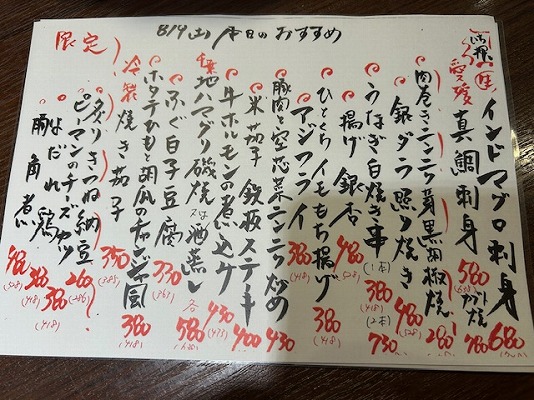 8/19 本日のおすすめ
限定
インドマグロ刺身 680
カマ焼 780
愛媛 真鯛刺身 580
肉巻きニンニク芽黒胡椒焼 280
銀ダラ照り焼き 480
うなぎ白焼き串 (1本) 380 (418) (2本) 730
揚げ銀杏 480 (528)
ひとくちイモもち揚げ 380 (418)
アジフライ 380 (418)
豚肉と空芯菜ニンニク炒め 430
米茄子鉄板ステーキ 400
牛ホルモンの煮込み 430 (473)
千葉 地ハマグリ磯焼 又は 酒蒸し 各 580
ふぐ白子豆腐 330 (363)
ホタテひもと胡瓜のチャンジャ風 380 (418)
冷製焼き茄子 350 (385)
炙りきつね納豆 260 (286)
ピーマンのチーズカツ 380 (418)
よだれ鶏 380 (418)
豚角煮 480 (528)